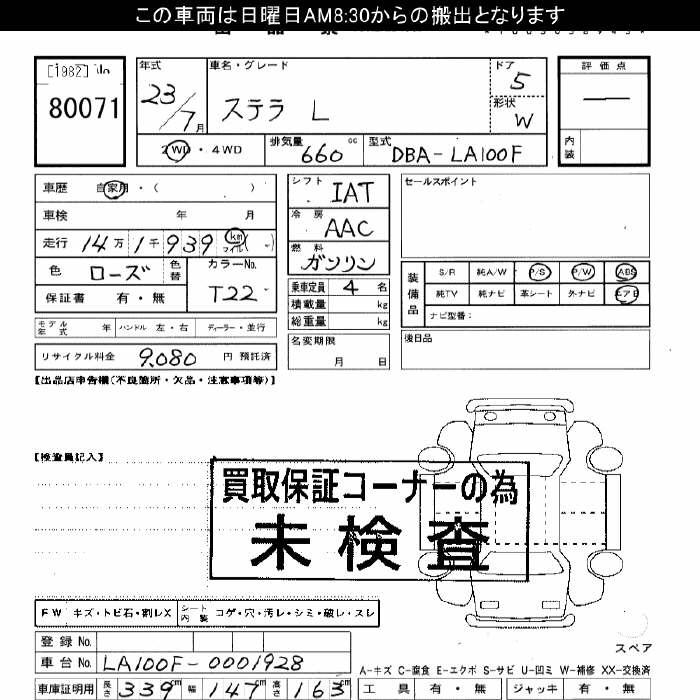 この車両は日曜日AM8:30からの搬出となります
[1982] No
80071
年式 車名・グレード ドア 評価点
23/7月 ステラ L 5 —
形状 W
2WD・4WD 排気量 660 cc 型式 DBA-LA100F 内装
車歴 自家用・( )
車検 年 月
走行 14万1千939 km マイル( )
色 ローズ 色替 カラーNo. T22
保証書 有・無
モデル年式 年 ハンドル 左・右 ディーラー・並行
リサイクル料金 9,080 円 預託済
シフト IAT
冷房 AAC
燃料 ガソリン
乗車定員 4 名
積載量 kg
総重量 kg
名変期限 月 日
セールスポイント
装備品 S/R 純A/W P/S P/W ABS
純TV 純ナビ 革シート 外ナビ エアB
ナビ型番:
後日品
【出品店申告欄(不良箇所・欠品・注意事項等)】
【検査員記入】
買取保証コーナーの為
未検査
FW キズ・トビ石・割レX シート内装 コゲ・穴・汚レ・シミ・破レ・スレ
登録No.
車台No. LA100F-0001928
車庫証明用 長さ 339cm 幅 147cm 高さ 163cm
スペア
A-キズ C-腐食 E-エクボ S-サビ U-凹ミ W-補修 XX-交換済
工具 有・無 ジャッキ 有・無